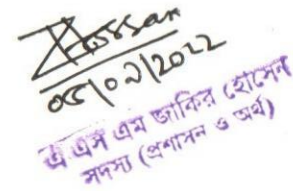 Hossan
০৫/০১/2022
এ এস এম জাকির হোসেন
সদস্য (প্রশাসন ও অর্থ)